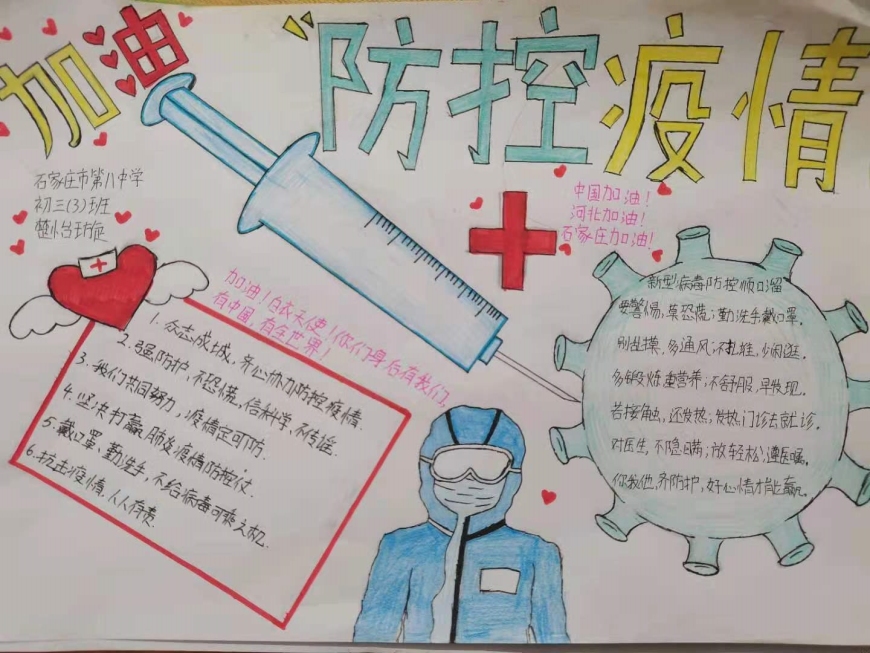 加油
防控疫情
石家庄市第八中学
初三(3)班
中国加油!
河北加油!
石家庄加油!
加油!白衣天使!你们身后有我们,
有中国,有全世界!
1. 众志成城,齐心协力防控疫情.
2. 强防护,不恐慌,信科学,不传谣.
3. 我们共同努力,疫情定可防.
4. 坚决打赢肺炎疫情防控仗.
5. 戴口罩,勤洗手,不给病毒可乘之机.
6. 抗击疫情,人人有责.
新型病毒防控顺口溜
要警惕,莫恐慌;勤洗手戴口罩.
别乱摸,多通风;不扎堆,少闲逛.
多锻炼,重营养;不舒服,早发现.
若接触,还发热;发热门诊去就诊.
对医生,不隐瞒;放轻松,遵医嘱.
你我他,齐防护,好心情才能赢.